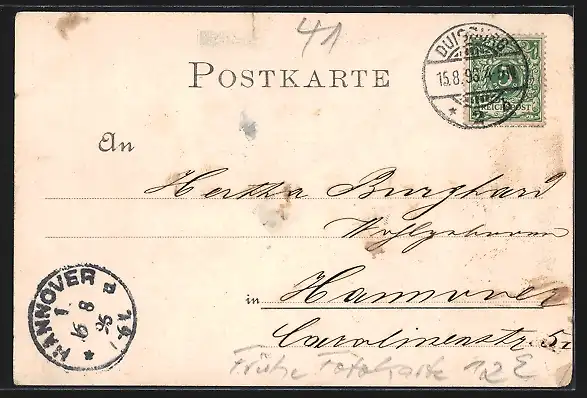 41
POSTKARTE
DUISBURG
15.8.96.
2
REICHSPOST
An
Hertha Burghard
Wohlgeboren
in Hannover
Carolinenstr. 5.
HANNOVER
1
16 8
96
Frühe Fotokarte 12 E